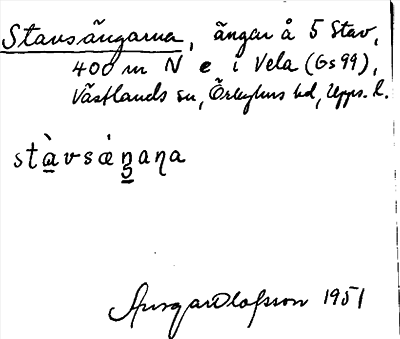 Stavsängarna, ängar å 5 Stav,
400 m N e i Vela (Gs 99),
Västlands sn, Örbyhus hd, Upps. l.
stàvsáŋaɳa
Ansgar Olofsson 1951